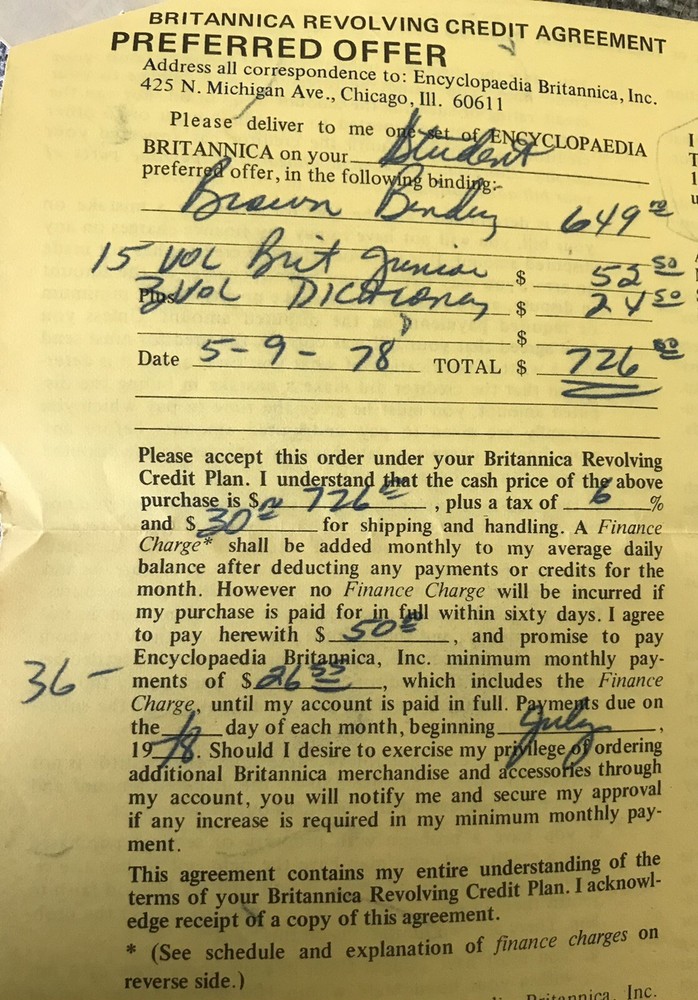 BRITANNICA REVOLVING CREDIT AGREEMENT
PREFERRED OFFER
Address all correspondence to: Encyclopaedia Britannica, Inc.
425 N. Michigan Ave., Chicago, Ill. 60611
Please deliver to me one set of ENCYCLOPAEDIA
BRITANNICA on your Student
preferred offer, in the following binding:
Brown Binding 649 00
15 VOL Brit Junior $ 52 50
Plus 3 VOL DICtionary $ 24 50
$
Date 5-9-78 TOTAL $ 726 00
Please accept this order under your Britannica Revolving
Credit Plan. I understand that the cash price of the above
purchase is $ 726 00, plus a tax of 6 %
and $ 30 00 for shipping and handling. A Finance
Charge* shall be added monthly to my average daily
balance after deducting any payments or credits for the
month. However no Finance Charge will be incurred if
my purchase is paid for in full within sixty days. I agree
to pay herewith $ 50 00, and promise to pay
Encyclopaedia Britannica, Inc. minimum monthly pay-
36 - ments of $ 26 53, which includes the Finance
Charge, until my account is paid in full. Payments due on
the 1 day of each month, beginning July,
19 78. Should I desire to exercise my privilege of ordering
additional Britannica merchandise and accessories through
my account, you will notify me and secure my approval
if any increase is required in my minimum monthly pay-
ment.
This agreement contains my entire understanding of the
terms of your Britannica Revolving Credit Plan. I acknowl-
edge receipt of a copy of this agreement.
* (See schedule and explanation of finance charges on
reverse side.)
Britannica, Inc.